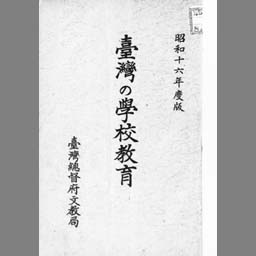 昭和十六年度版
臺灣の學校教育
臺灣總督府文教局